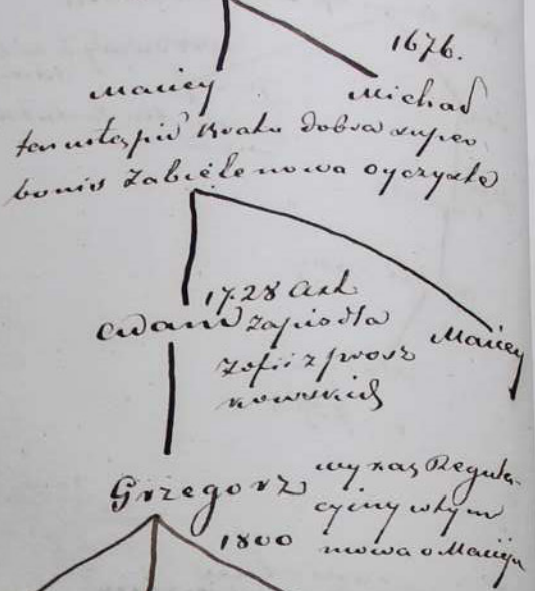 1676.
Maciey Michał
ten ustąpił Bratu dobra super
bonis Zabielenowa oyczyste
1728 Act
Adam zapis dla Maciey
Zofii z prosz
kowskich
Grzegorz wykaz Regula-
cyiny w tym
1800 mowa o Macieju